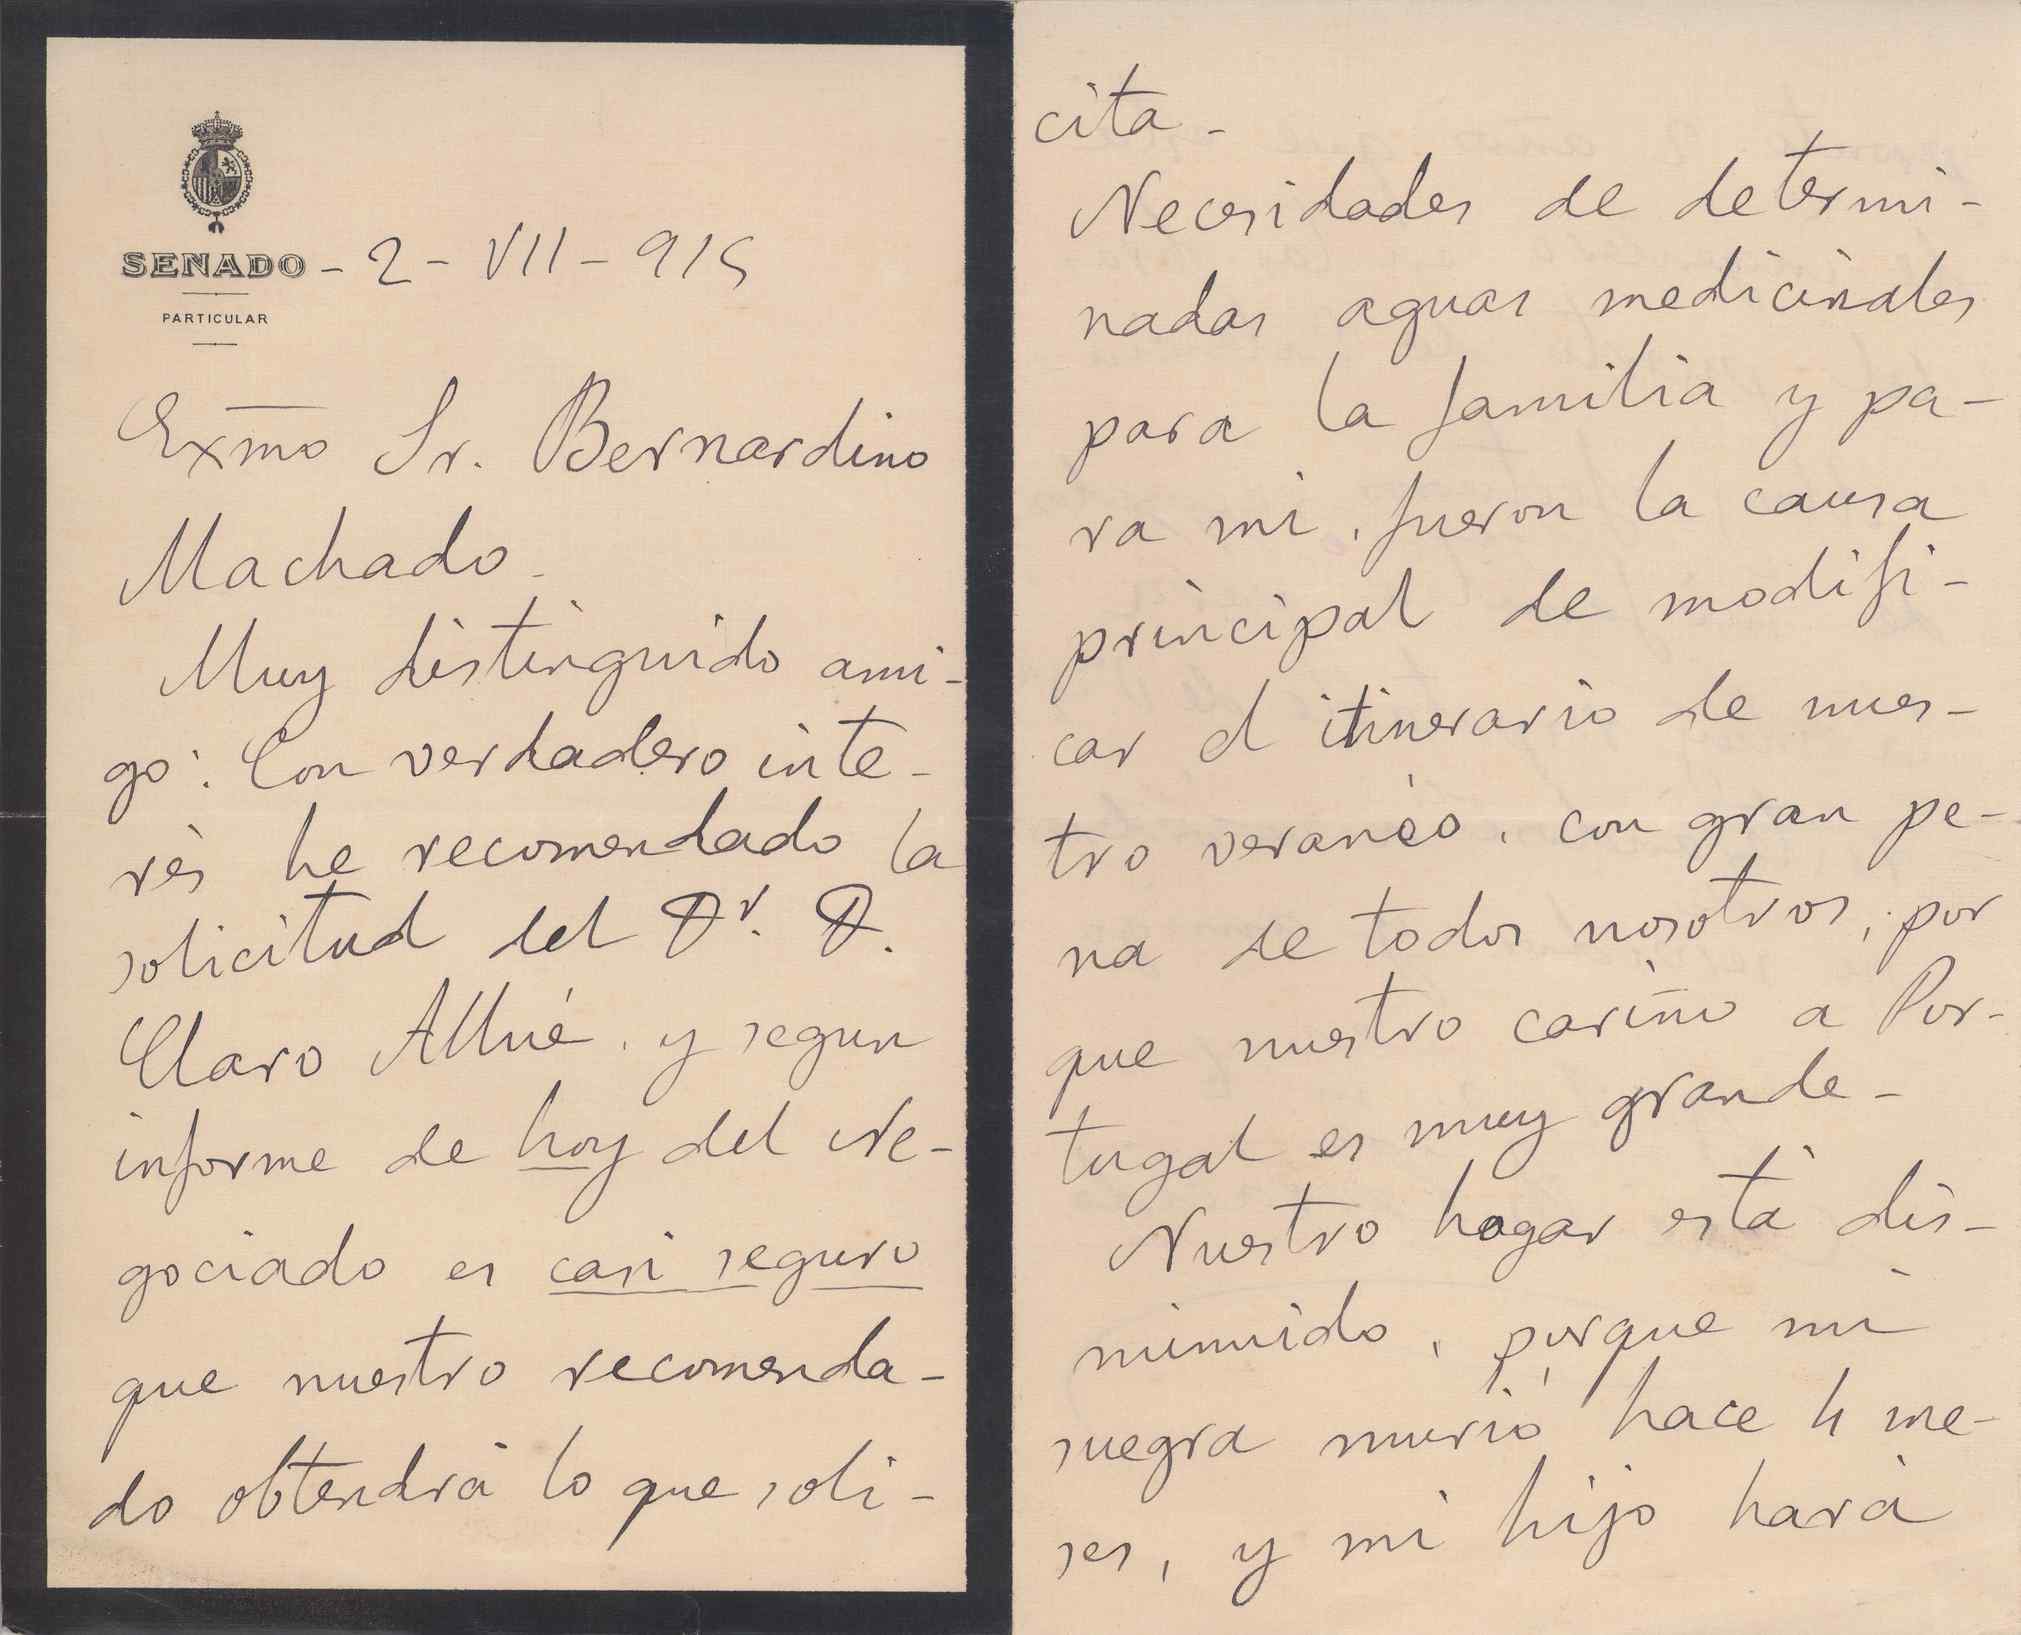 SENADO - 2 - VII - 915
PARTICULAR
Exmo Sr. Bernardino
Machado.
Muy distinguido ami-
go: Con verdadero inte-
rés he recomendado la
solicitud del Dr. D.
Claro Allué, y segun
informe de hoy del Ne-
gociado es casi seguro
que nuestro recomenda-
do obtendrá lo que soli-
cita -
Necesidades de determi-
nadas aguas medicinales
para la familia y pa-
ra mi, fueron la causa
principal de modifi-
car el itinerario de nues-
tro veraneo, con gran pe-
na de todos nosotros, por
que nuestro cariño a Por-
tugal es muy grande -
Nuestro hogar está dis-
minuido, porque mi
suegra murió hace 4 me-
ses, y mi hijo hará